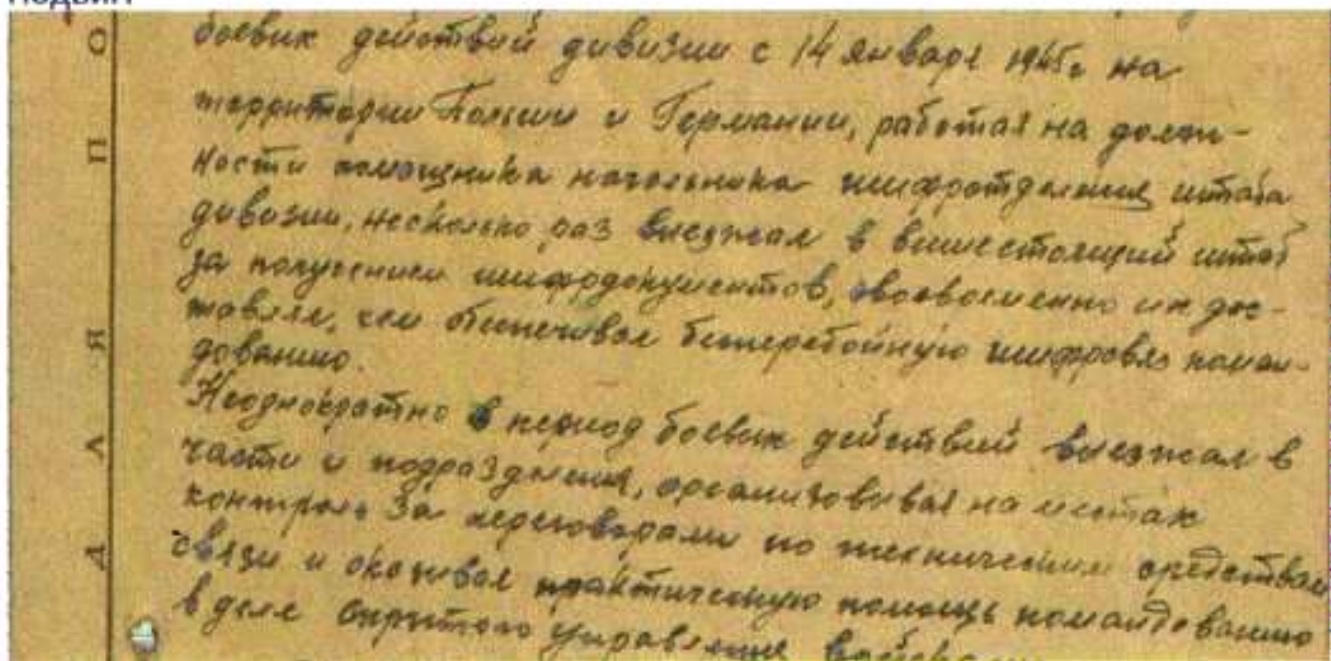 боевых действий дивизии с 14 января 1945г. на
территории Польши и Германии, работая на долж-
ности помощника начальника шифротделения штаба
дивизии, несколько раз выезжал в вышестоящий штаб
за получением шифродокументов, своевременно их дос-
тавлял, чем обеспечивал бесперебойную шифросвязь коман-
дованию.
Неоднократно в период боевых действий выезжал в
части и подразделения, организовывал на местах
контроль за переговорами по техническим средствам
связи и оказывал практическую помощь командованию
в деле скрытого управления войсками
О
П
Я
Л
Д